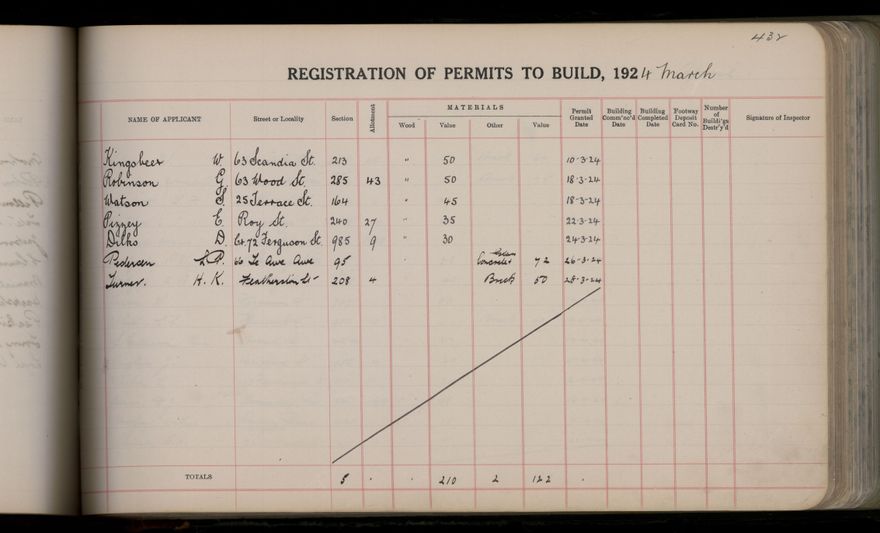 432
REGISTRATION OF PERMITS TO BUILD, 1924 March
NAME OF APPLICANT Street or Locality Section Allotment MATERIALS Wood Value Other Value Permit Granted Date Building Comm'nc'd Date Building Completed Date Footway Deposit Card No. Number of Buildi'gs Destr'y'd Signature of Inspector
Kingsbeer W. 63 Scandia St. 213 " 50 10-3-24
Robinson G. 63 Wood St. 285 43 " 50 18-3-24
Watson S. 25 Terrace St. 164 " 45 18-3-24
Pizzey E. Roy St. 240 27 " 35 22-3-24
Ditko D. Cr. 72 Ferguson St. 985 9 " 30 24-3-24
Pedersen L.P. Te Awe Awe 95 Concrete 72 26-3-24
Turner. H. K. Featherston St 208 4 Brick 50 28-3-24
TOTALS 5 210 2 122